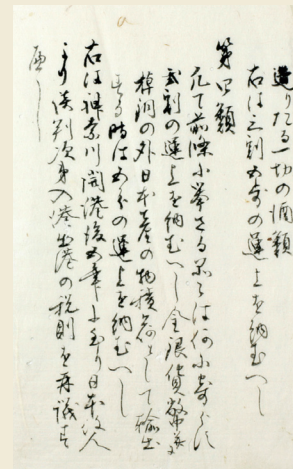 造りたる一切の酒類
右は三割五分の運上を納むへし
第四類
凡て前条に挙さる品々は何に寄らす
弐割の運上を納むへし金銀貨幣並
棹銅の外日本産の物積荷として輸出
する時は五分の運上を納むへし
右は神奈川開港後五年に至り日本役人
より談判次第入港出港の税則を再議す
へし